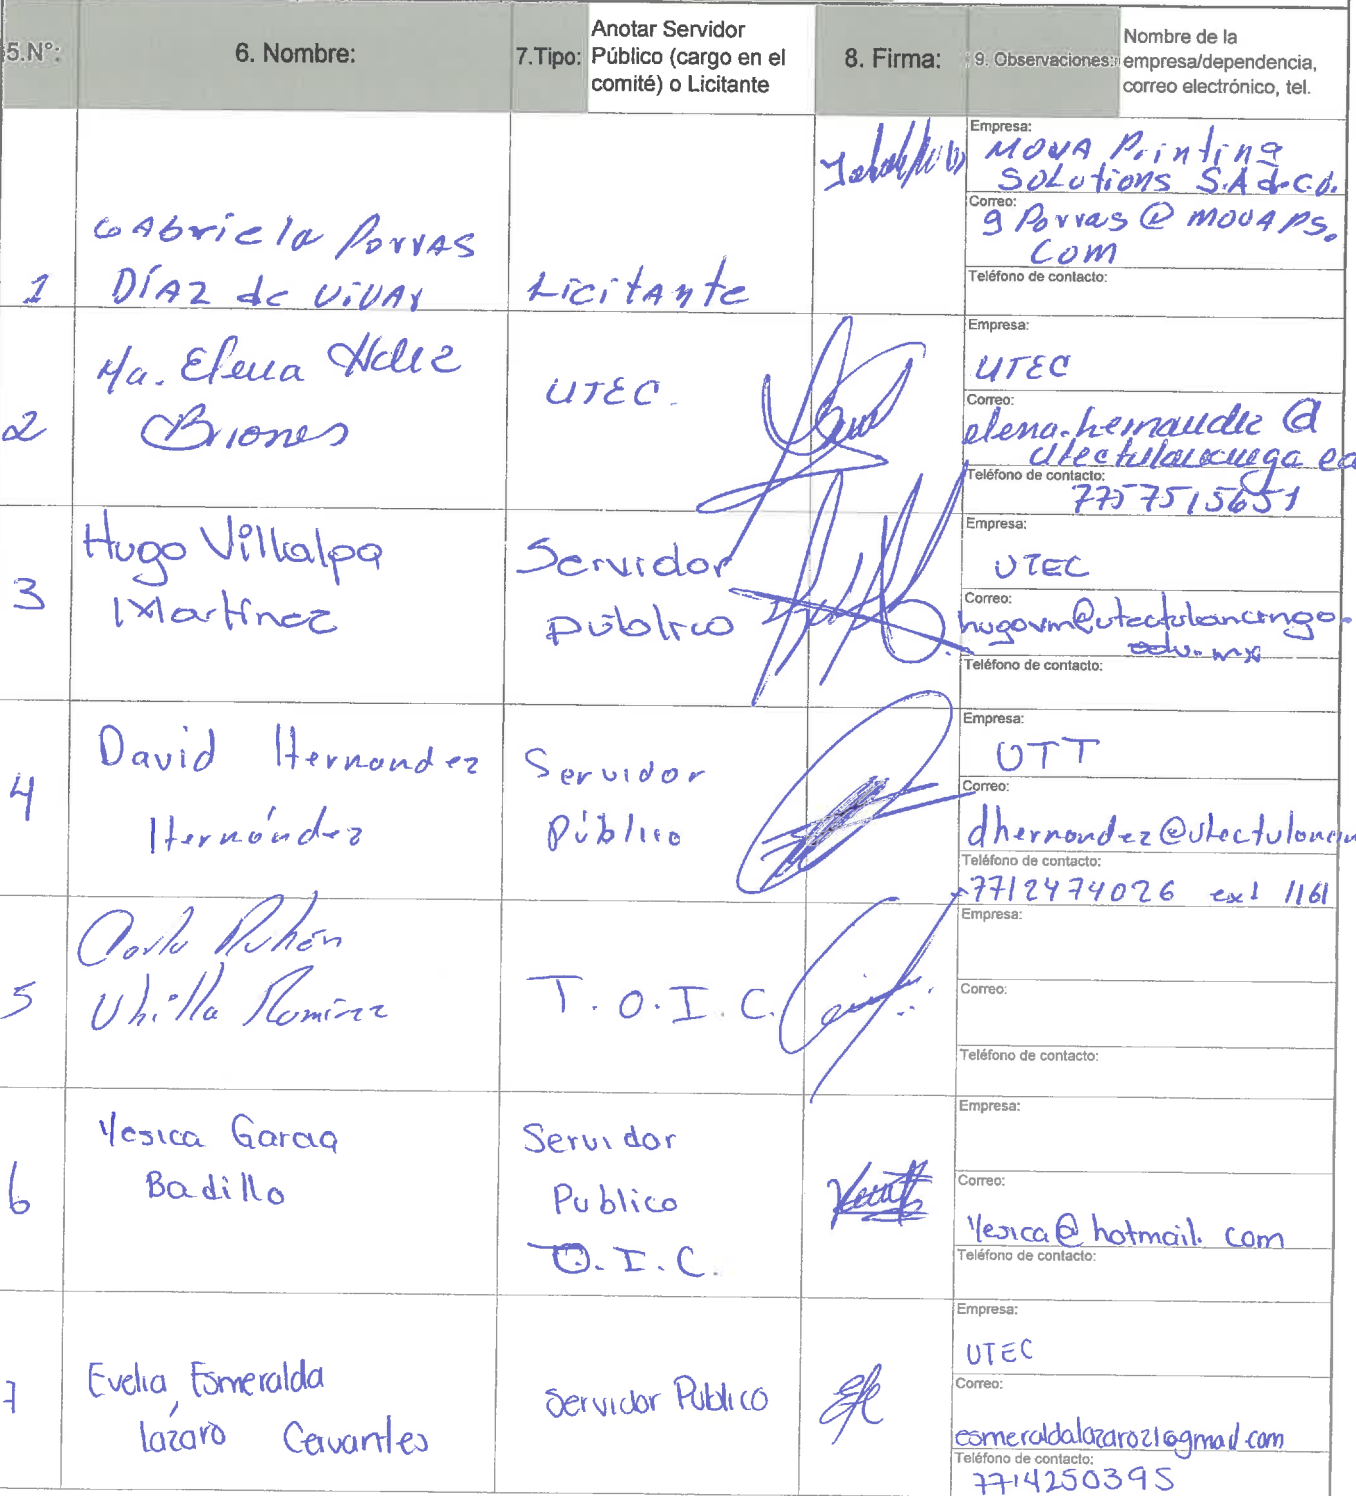 5.N°:
6. Nombre:
7.Tipo:
Anotar Servidor
Público (cargo en el
comité) o Licitante
8. Firma:
9. Observaciones:
Nombre de la
empresa/dependencia,
correo electrónico, tel.
1
GAbriela PorrAS
DÍAZ de ViVAr
LicitAnte
Empresa:
MOVA Printing
SOLutions S.A de C.V.
Correo:
gPorras@movAPS.
com
Teléfono de contacto:
2
Ma. Elena Hdez
Briones
UTEC.
Empresa:
UTEC
Correo:
elena.hernandez@
Teléfono de contacto:
7757515651
3
Hugo Villalpa
Martínez
Servidor
público
Empresa:
UTEC
Correo:
hugovm@utectulancingo.
edu.mx
Teléfono de contacto:
4
David Hernandez
Hernández
Servidor
Público
Empresa:
UTT
Correo:
dhernandez@utectulancin
Teléfono de contacto:
7712474026 ext 1161
5
Ramírez
T.O.I.C.
Empresa:
Correo:
Teléfono de contacto:
6
Yesica Garcia
Badillo
Servidor
Publico
O.I.C.
Empresa:
Correo:
Yesica@hotmail.com
Teléfono de contacto:
7
Evelia Esmeralda
lázaro Cervantes
Servidor Publico
Empresa:
UTEC
Correo:
esmeraldalazaro21@gmail.com
Teléfono de contacto:
7714250395